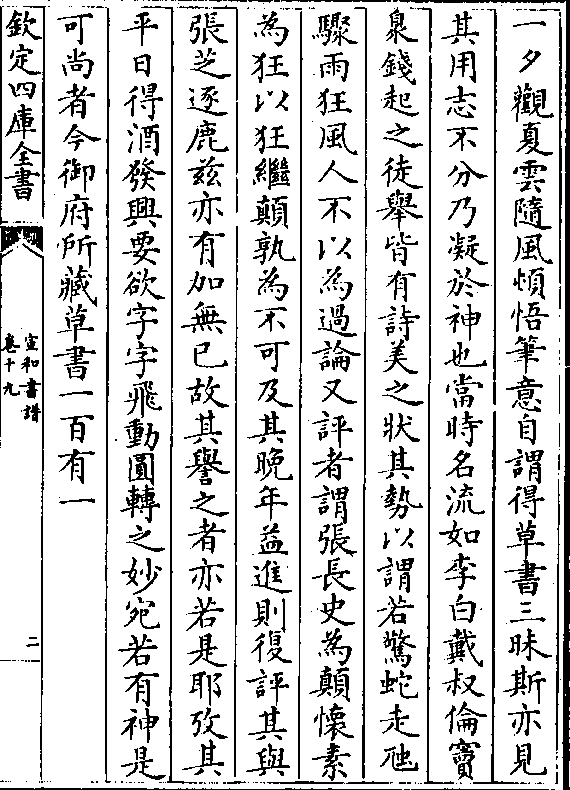 一夕觀夏雲隨風頓悟筆意自謂得草書三昧斯亦見
其用志不分乃凝於神也當時名流如李白戴叔倫竇
臮錢起之徒舉皆有詩美之狀其勢以謂若驚蛇走虺
驟雨狂風人不以為過論又評者謂張長史為顛懷素
為狂以狂繼顛孰為不可及其晚年益進則復評其與
張芝逐鹿兹亦有加無已故其譽之者亦若是耶攷其
平日得酒發興要欲字字飛動圓轉之妙宛若有神是
可尚者今御府所藏草書一百有一
欽定四庫全書
宣和書譜
卷十九
二